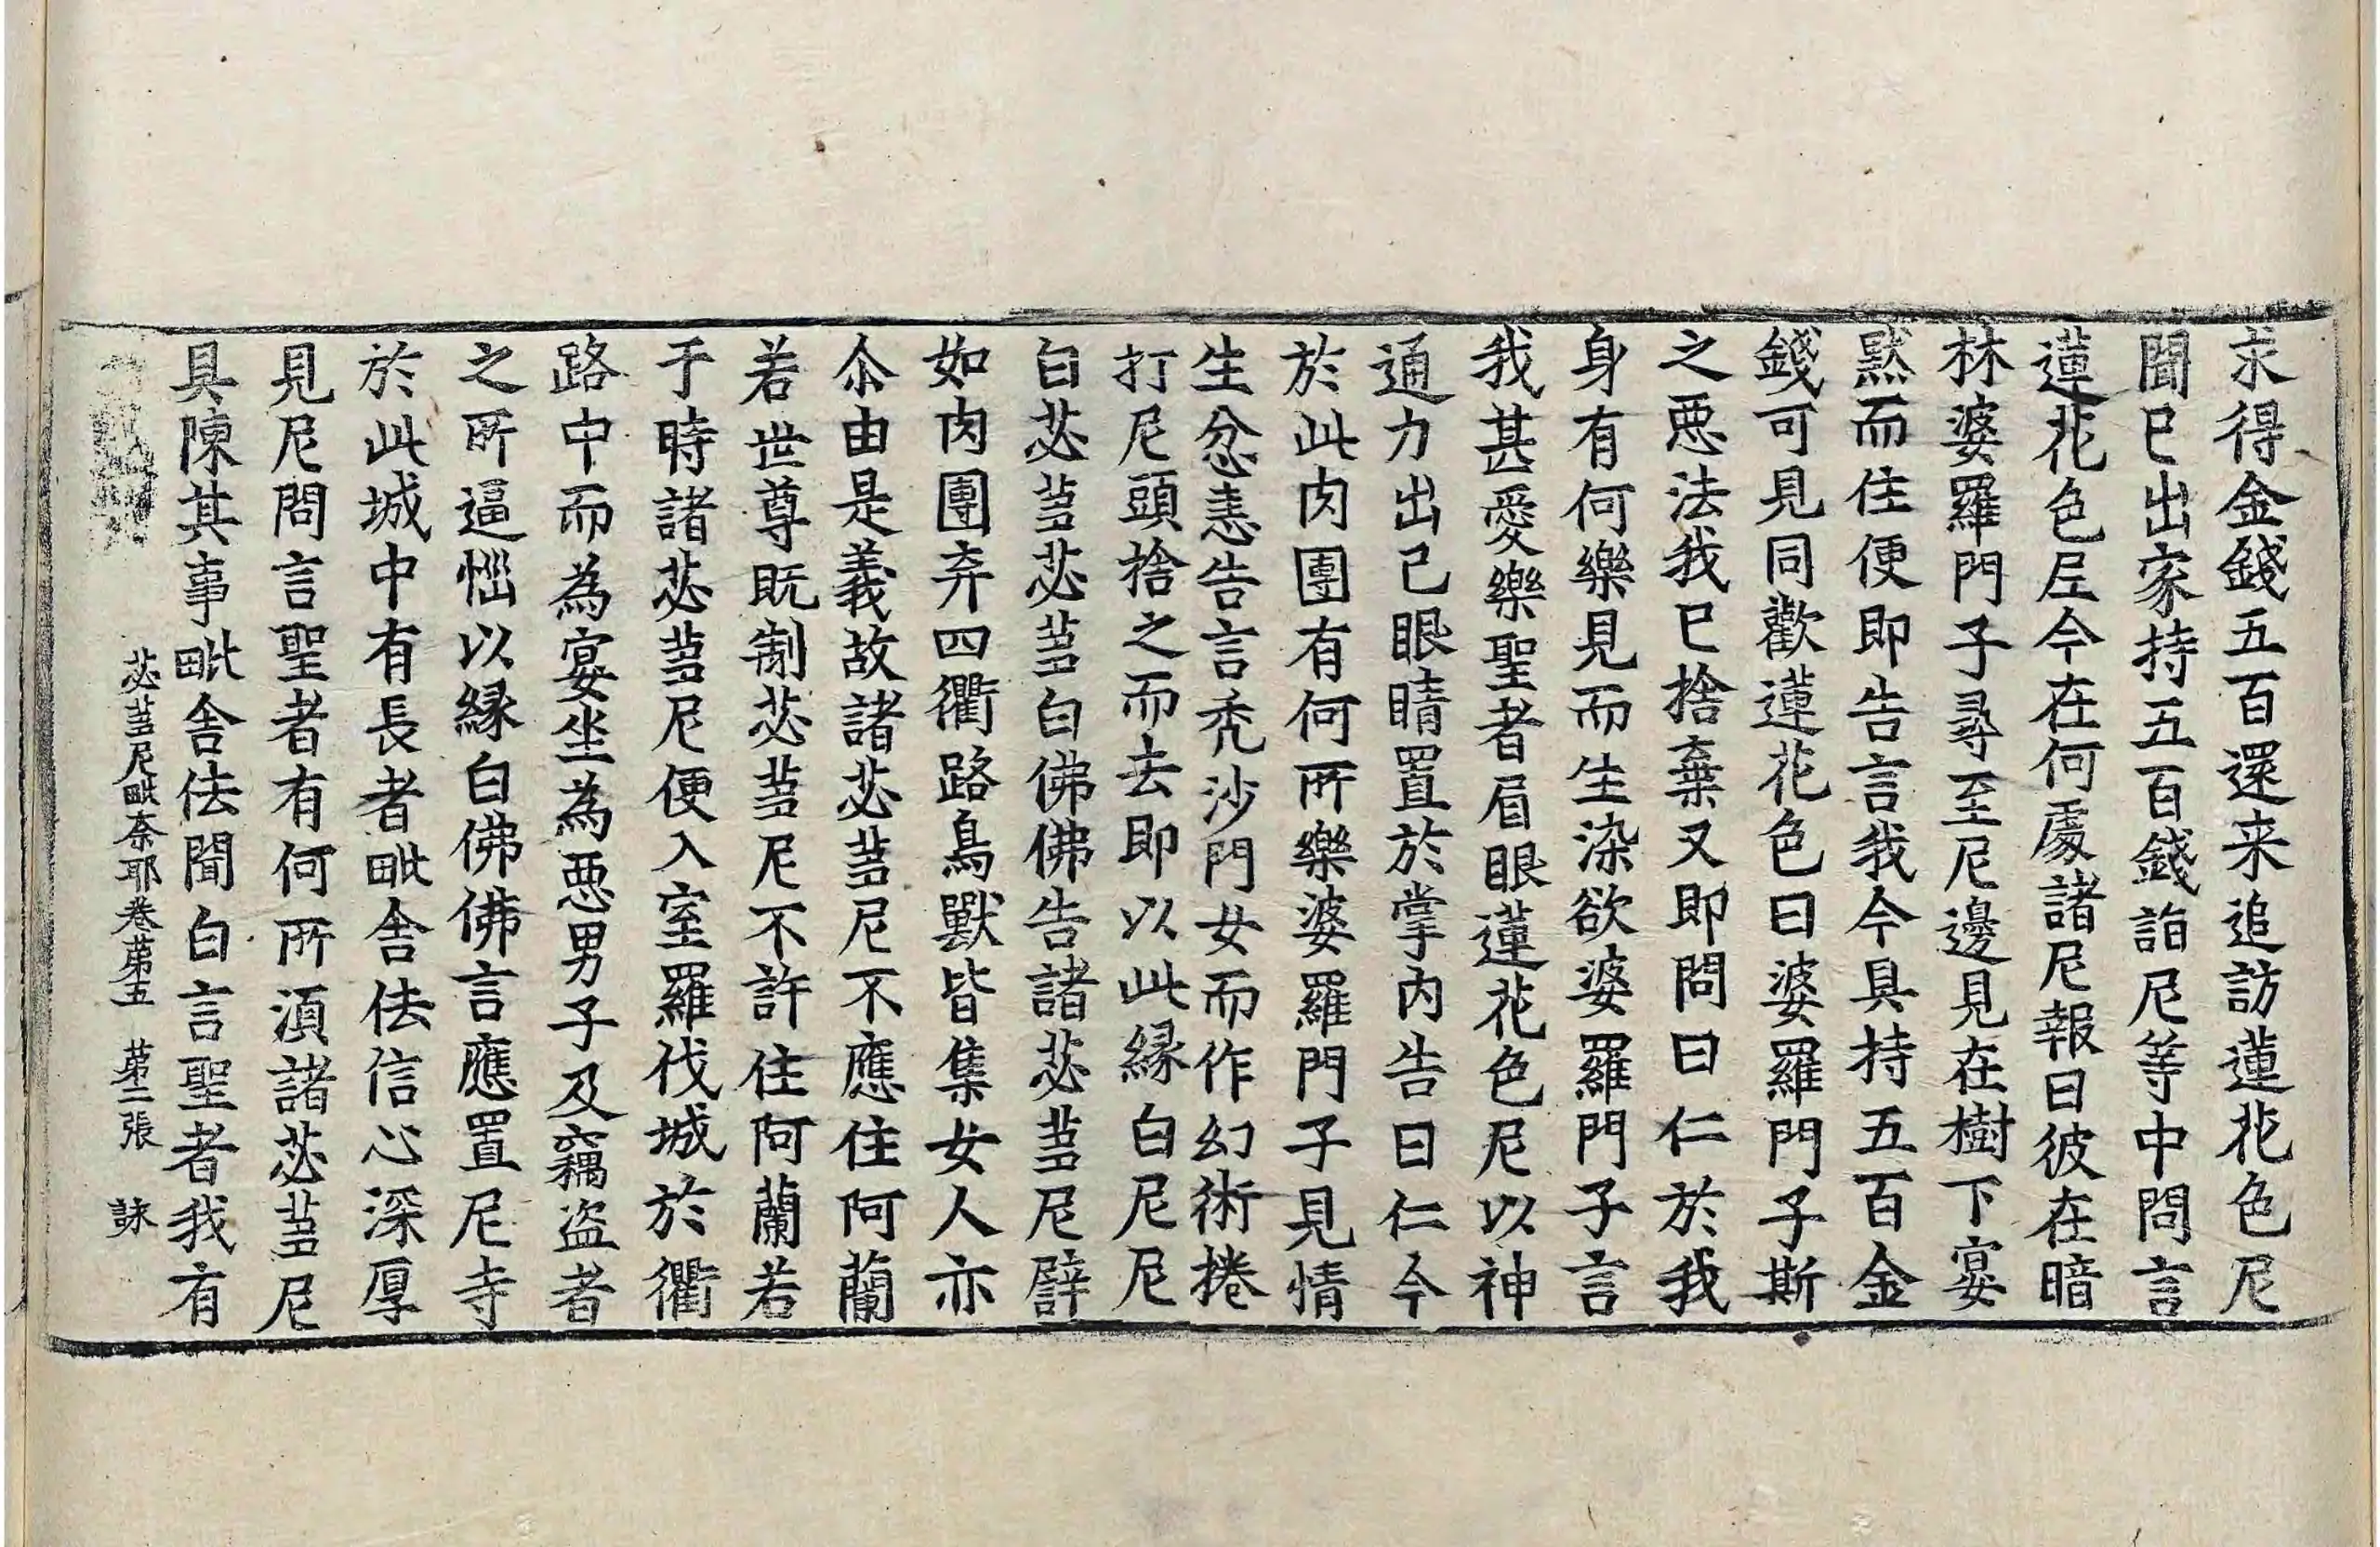 求得金錢五百還来追訪蓮花色尼
聞巳出家持五百錢詣尼等中問言
蓮花色尼今在何處諸尼報曰彼在暗
林婆羅門子尋至尼邊見在樹下宴
黙而住便即告言我今具持五百金
錢可見同歡蓮花色曰婆羅門子斯
之惡法我巳捨棄又即問曰仁於我
身有何樂見而生染欲婆羅門子言
我甚愛樂聖者眉眼蓮花色尼以神
通力出己眼睛置於掌內告曰仁今
於此肉團有何所樂婆羅門子見情
生忿恚告言禿沙門女而作幻術捲
打尼頭捨之而去即以此縁白尼尼
白苾芻苾芻白佛佛告諸苾芻尼譬
如肉團弃四衢路鳥獸皆集女人亦
尒由是義故諸苾芻尼不應住阿蘭
若世尊既制苾芻尼不許住阿蘭若
于時諸苾芻尼便入室羅伐城於衢
路中而為宴坐為惡男子及竊盗者
之所逼惱以縁白佛佛言應置尼寺
於此城中有長者毗舍佉信心深厚
見尼問言聖者有何所湏諸苾芻尼
具陳其事毗舍佉聞白言聖者我有
苾芻尼毗奈耶卷苐五 苐二張 詠